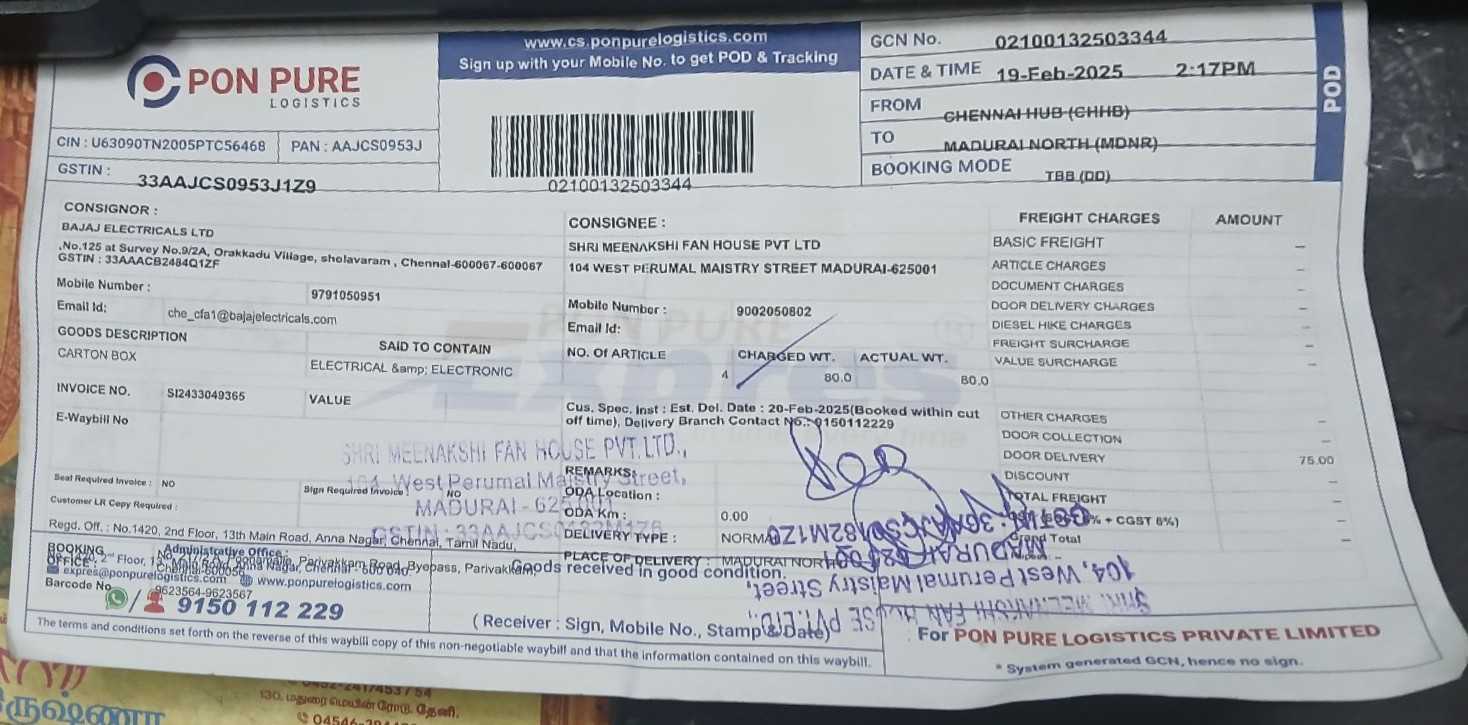 PON PURE
LOGISTICS
CIN : U63090TN2005PTC56468
PAN : AAJCS0953J
GSTIN :
33AAJCS0953J1Z9
www.cs.ponpurelogistics.com
Sign up with your Mobile No. to get POD & Tracking
02100132503344
GCN No. 02100132503344
DATE & TIME 19-Feb-2025 2:17PM
FROM CHENNAI HUB (CHHB)
TO MADURAI NORTH (MDNR)
BOOKING MODE TBB (DD)
POD
CONSIGNOR :
BAJAJ ELECTRICALS LTD
,No.125 at Survey No.9/2A, Orakkadu Village, sholavaram , Chennal-600067-600067
GSTIN : 33AAACB2484Q1ZF
Mobile Number : 9791050951
Email Id: che_cfa1@bajajelectricals.com
GOODS DESCRIPTION SAID TO CONTAIN
CARTON BOX ELECTRICAL &amp; ELECTRONIC
INVOICE NO. SI2433049365 VALUE
E-Waybill No
Seal Required Invoice : NO
Sign Required Invoice : NO
Customer LR Copy Required :
CONSIGNEE :
SHRI MEENAKSHI FAN HOUSE PVT LTD
104 WEST PERUMAL MAISTRY STREET MADURAI-625001
Mobile Number : 9002050802
Email Id:
NO. Of ARTICLE CHARGED WT. ACTUAL WT.
4 80.0 80.0
Cus. Spec. Inst : Est. Del. Date : 20-Feb-2025(Booked within cut
off time), Delivery Branch Contact No.: 9150112229
REMARKS:
ODA Location :
ODA Km : 0.00
DELIVERY TYPE : NORMAL
PLACE OF DELIVERY : MADURAI NORTH
Goods received in good condition.
(Receiver : Sign, Mobile No., Stamp & Date)
FREIGHT CHARGES AMOUNT
BASIC FREIGHT –
ARTICLE CHARGES –
DOCUMENT CHARGES –
DOOR DELIVERY CHARGES –
DIESEL HIKE CHARGES –
FREIGHT SURCHARGE –
VALUE SURCHARGE –
OTHER CHARGES –
DOOR COLLECTION –
DOOR DELIVERY 75.00
DISCOUNT –
TOTAL FREIGHT –
% + CGST 6%)
Grand Total –
PON PURE
Expres
SHRI MEENAKSHI FAN HOUSE PVT.LTD.,
104, West Perumal Maistry Street,
MADURAI - 625 001
SHRI MEENAKSHI FAN HOUSE PVT.LTD.,
104, West Perumal Maistry Street,
MADURAI - 625 001
Regd. Off. : No.1420, 2nd Floor, 13th Main Road, Anna Nagar, Chennai, Tamil Nadu,
BOOKING
OFFICE :
Administrative Office :
expres@ponpurelogistics.com www.ponpurelogistics.com
Barcode No 9623564-9623567
/ 9150 112 229
The terms and conditions set forth on the reverse of this waybill copy of this non-negotiable waybill and that the information contained on this waybill.
For PON PURE LOGISTICS PRIVATE LIMITED
* System generated GCN, hence no sign.
130, மதுரை மெயின் ரோடு, தேனி.